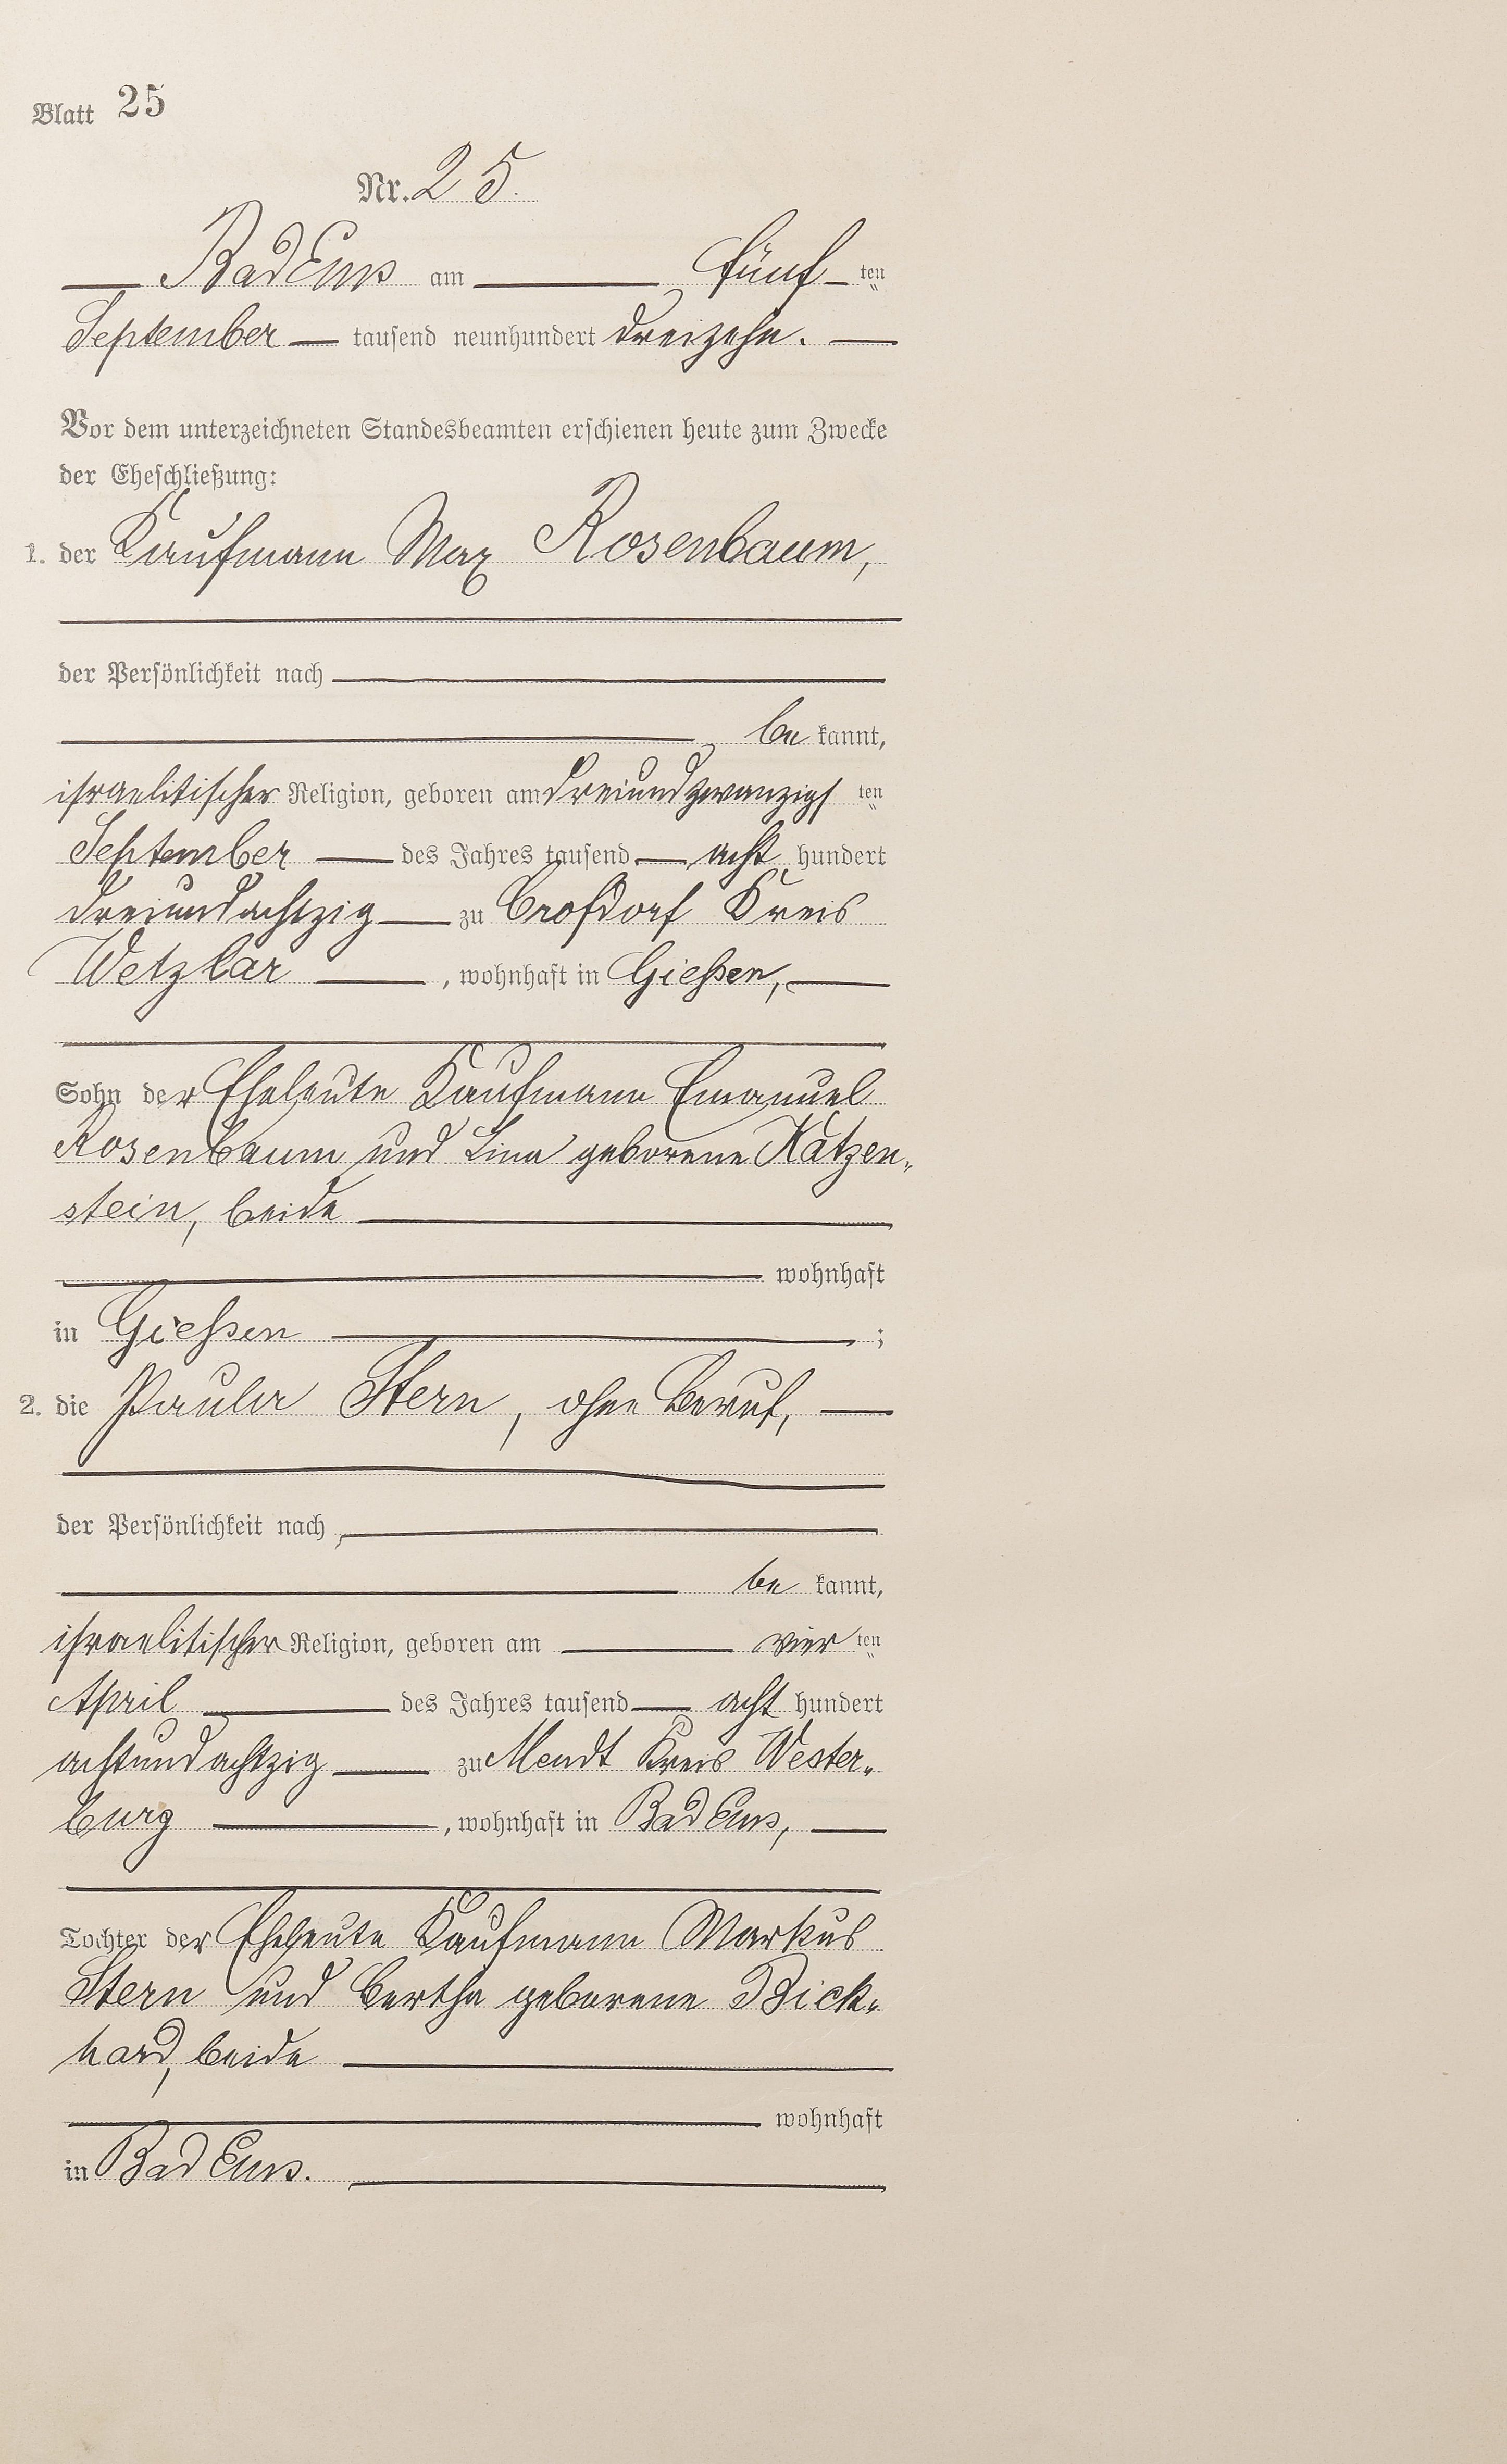 Blatt 25
Nr. 25.
Bad Ems am fünf ten
September tausend neunhundert dreizehn.
Vor dem unterzeichneten Standesbeamten erschienen heute zum Zwecke
der Eheschließung:
1. der Kaufmann Max Rosenbaum,
der Persönlichkeit nach
be kannt,
israelitischer Religion, geboren am dreiundzwanzigs ten
September des Jahres tausend acht hundert
dreiundachtzig zu Crofdorf Kreis
Wetzlar, wohnhaft in Gießen,
Sohn der Eheleute Kaufmann Emanuel
Rosenbaum und Lina geborene Katzen-
stein, beide
wohnhaft
in Gießen ;
2. die Paula Stern, ohne Beruf,
der Persönlichkeit nach
be kannt,
israelitischer Religion, geboren am vier ten
April des Jahres tausend acht hundert
achtundachtzig zu Meudt Kreis Wester-
burg, wohnhaft in Bad Ems,
Tochter der Eheleute Kaufmann Markus
Stern und Bertha geborene Bick-
hard, beide
wohnhaft
in Bad Ems.